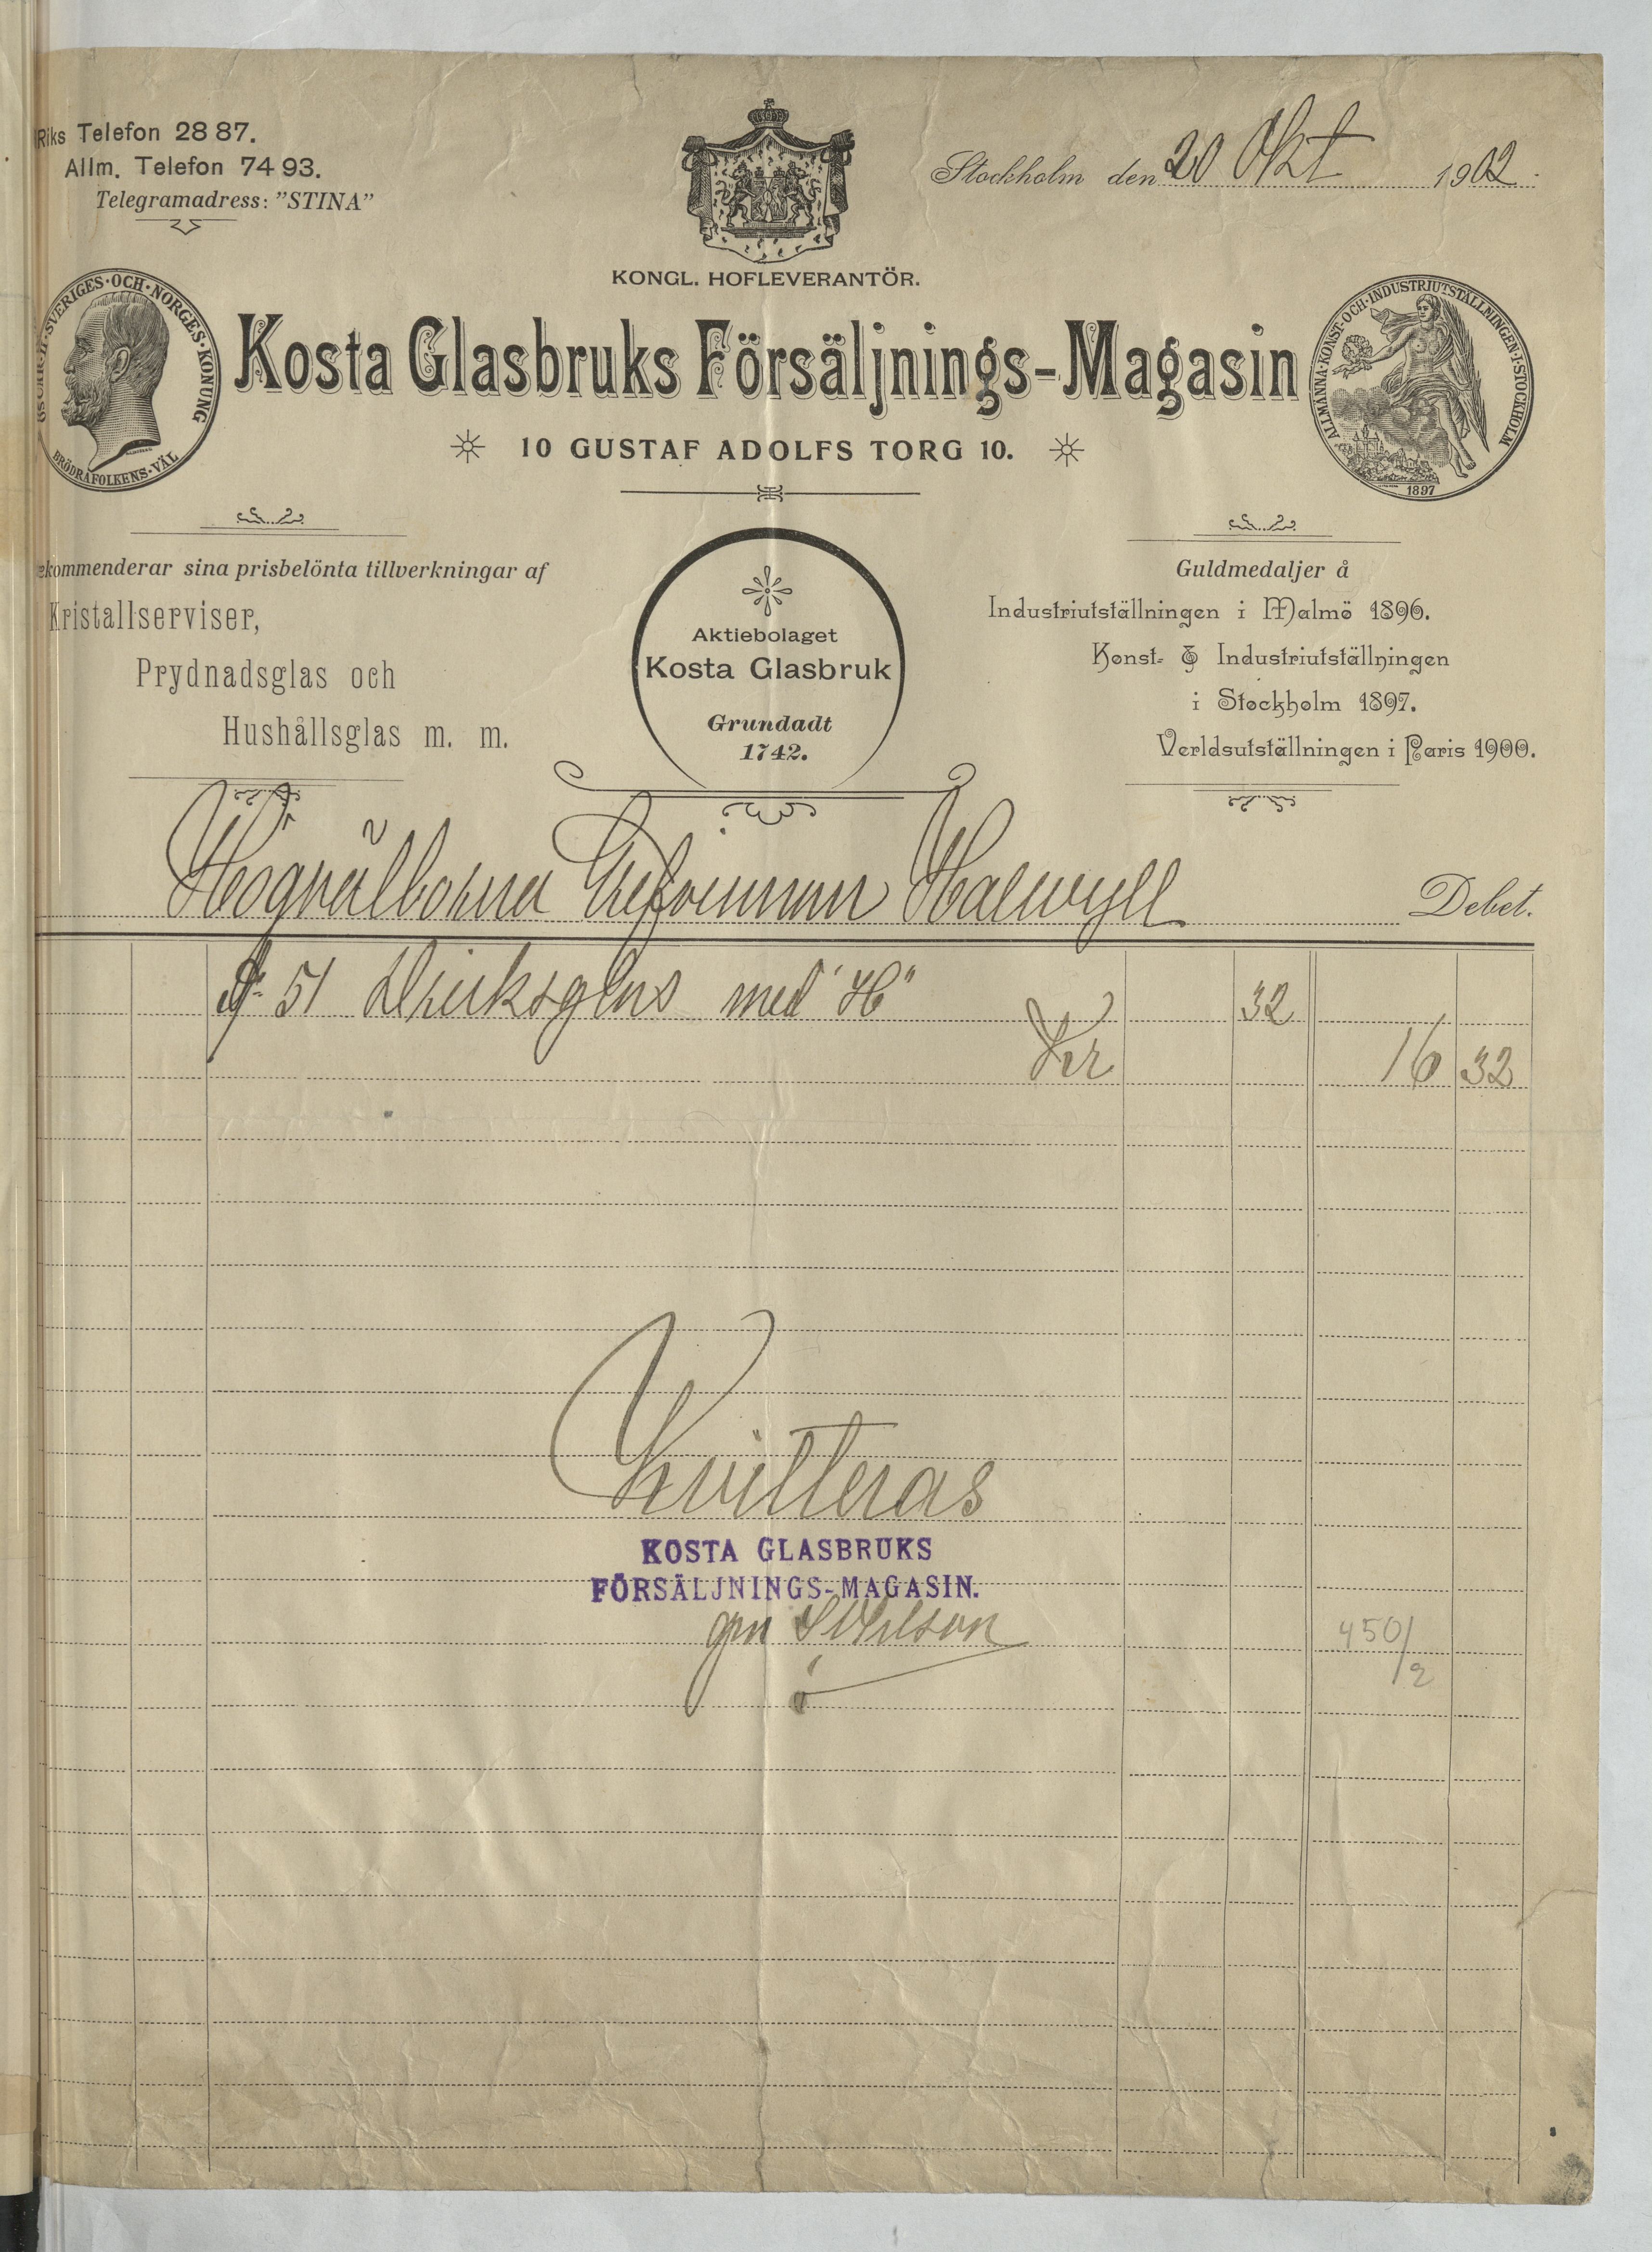 Riks Telefon 28 87.
Allm. Telefon 74 93.
Telegramadress: "STINA"
Stockholm den 20 Okt 1902.
KONGL. HOFLEVERANTÖR.
OSCAR·II·SVERIGES·OCH·NORGES·KONUNG
BRÖDRAFOLKENS·VÄL
Kosta Glasbruks Försäljnings-Magasin
ALLMÄNNA·KONST·OCH·INDUSTRIUTSTÄLLNINGEN·I·STOCKHOLM
1897
10 GUSTAF ADOLFS TORG 10.
ekommenderar sina prisbelönta tillverkningar af
Kristallserviser,
Prydnadsglas och
Hushållsglas m. m.
Aktiebolaget
Kosta Glasbruk
Grundadt
1742.
Guldmedaljer å
Industriutställningen i Malmö 1896.
Konst- & Industriutställningen
i Stockholm 1897.
Verldsutställningen i Paris 1900.
Högvälborna Grefvinnan Halwyll Debet.
51 Dricksglas med "H" 32
Kr 16 32
Kvitteras
KOSTA GLASBRUKS
FÖRSÄLJNINGS-MAGASIN.
450/2